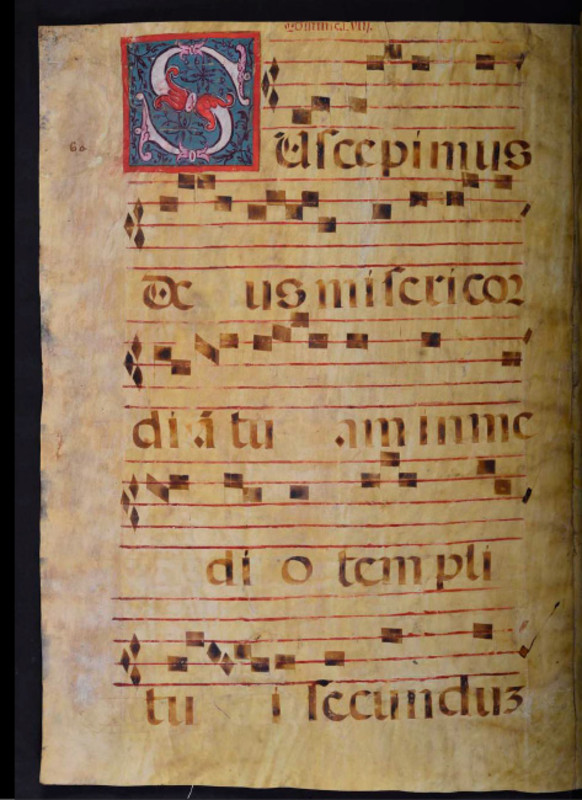 Dominica.VIII.
SUscepimus
60
De us misericor
diā tu am in me
di o templi
tu i secunduz